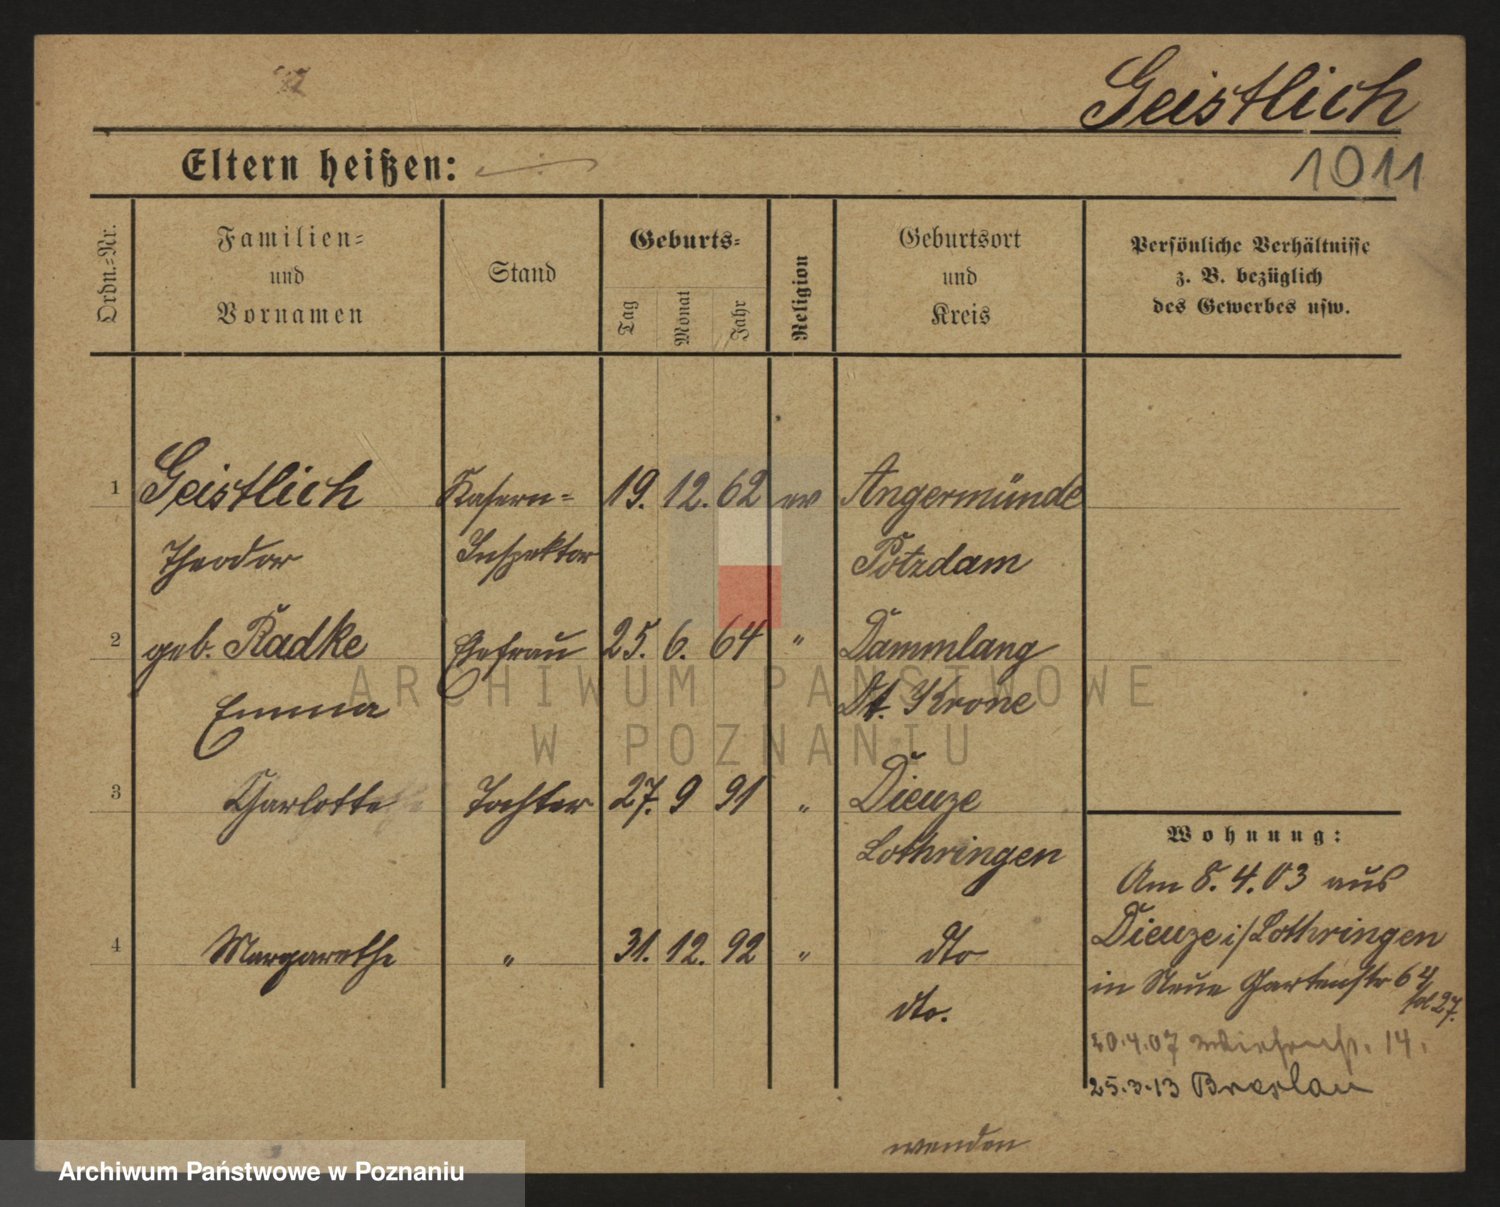 Geistlich
Eltern heißen:
1011
Ordn.-Nr.
Familien- und Vornamen
Stand
Geburts-
Tag
Monat
Jahr
Religion
Geburtsort und Kreis
Persönliche Verhältnisse
z. B. bezüglich
des Gewerbes usw.
1 Geistlich Kasern- 19. 12. 62 ev Angermünde
Theodor Inspektor Potzdam
2 geb. Radke Ehefrau 25. 6. 64 " Dammlang
Emma Dt. Krone
3 Charlotte Tochter 27. 9 91 " Dieuze
Lothringen
4 Margarethe " 31. 12. 92 " dto
dto.
Wohnung:
Am 8. 4. 03 aus
Dieuze i/Lothringen
in Neue Gartenstr 64
fol 27.
20.4.07 14.
25.3.13 Breslau
wenden
ARCHIWUM PAŃSTWOWE
W POZNANIU
Archiwum Państwowe w Poznaniu